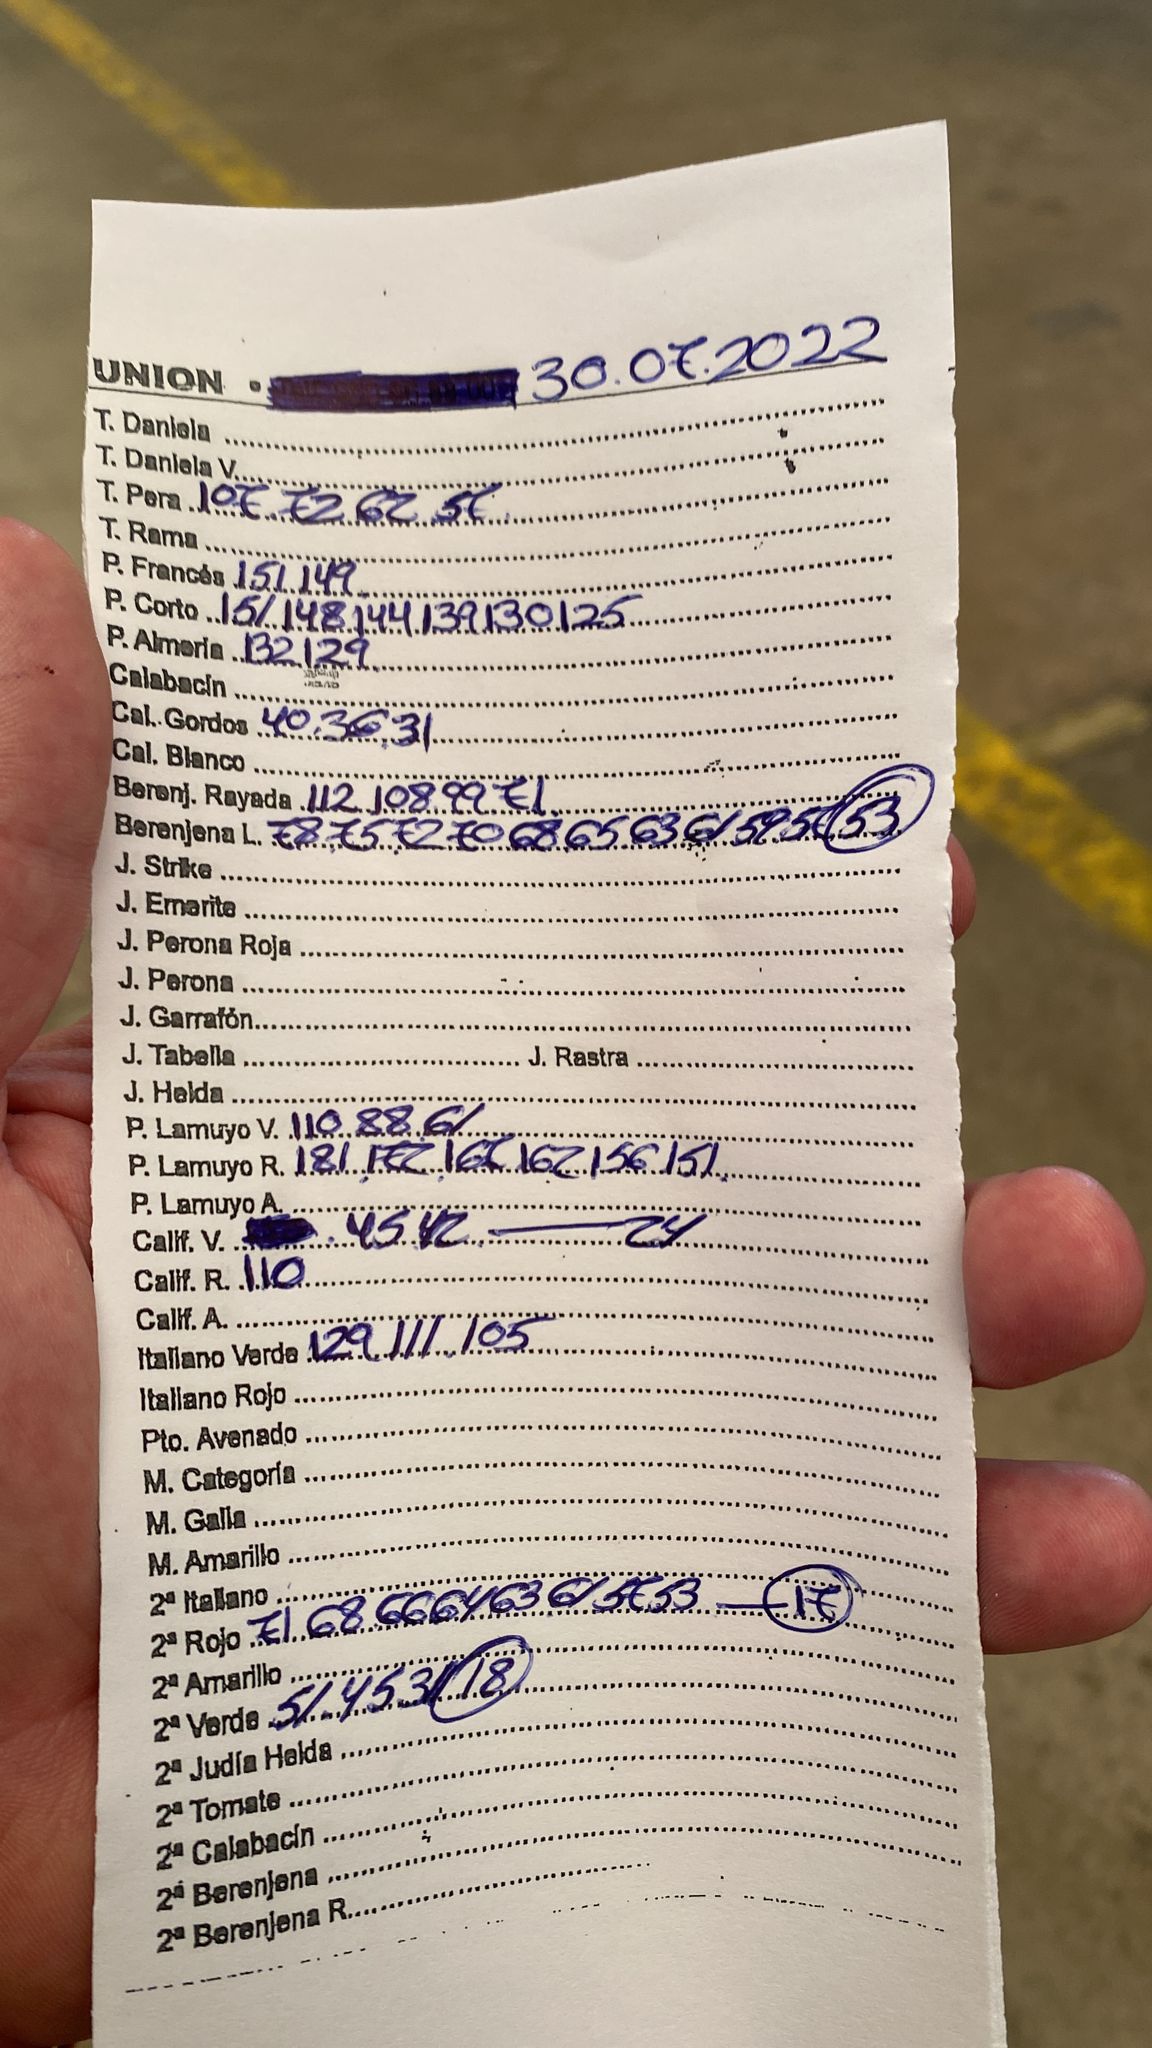 UNION • 30.07.2022
T. Daniela
T. Daniela V.
T. Pera 107 72 62 57
T. Rama
P. Francés 151 149
P. Corto 151 148 144 139 130 125
P. Almería 132 129
Calabacín
Cal. Gordos 40 36 31
Cal. Blanco
Berenj. Rayada 112 108 99 71
Berenjena L. 78 75 72 70 68 65 63 61 59 57 53
J. Strike
J. Emerite
J. Perona Roja
J. Perona
J. Garrafón
J. Tabella J. Rastra
J. Helda
P. Lamuyo V. 110 88 61
P. Lamuyo R. 181 172 167 162 156 151
P. Lamuyo A.
Calif. V. 45 42 — 24
Calif. R. 110
Calif. A.
Italiano Verde 129 111 105
Italiano Rojo
Pto. Avenado
M. Categoría
M. Galia
M. Amarillo
2ª Italiano
2ª Rojo 71 68 66 64 63 61 57 53 — 17
2ª Amarillo
2ª Verde 51 45 31 18
2ª Judía Helda
2ª Tomate
2ª Calabacín
2ª Berenjena
2ª Berenjena R.